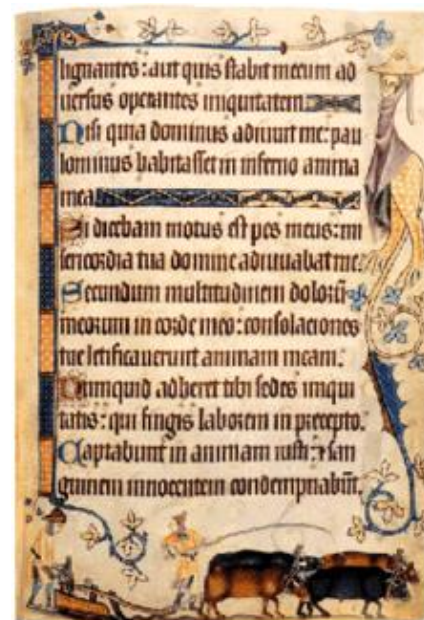 lignantes: aut quis stabit mecum ad
uersus operantes iniquitatem.
Nisi quia dominus adiuuit me: pau
lominus habitasset in inferno anima
mea.
Si dicebam motus est pes meus: mi
sericordia tua domine adiuuabat me.
Secundum multitudinem dolorū
meorum in corde meo: consolaciones
tue letificauerunt animam meam.
Numquid adheret tibi sedes iniqui
tatis: qui fingis laborem in precepto.
Captabunt in animam iusti: & san
guinem innocentem condempnabūt.